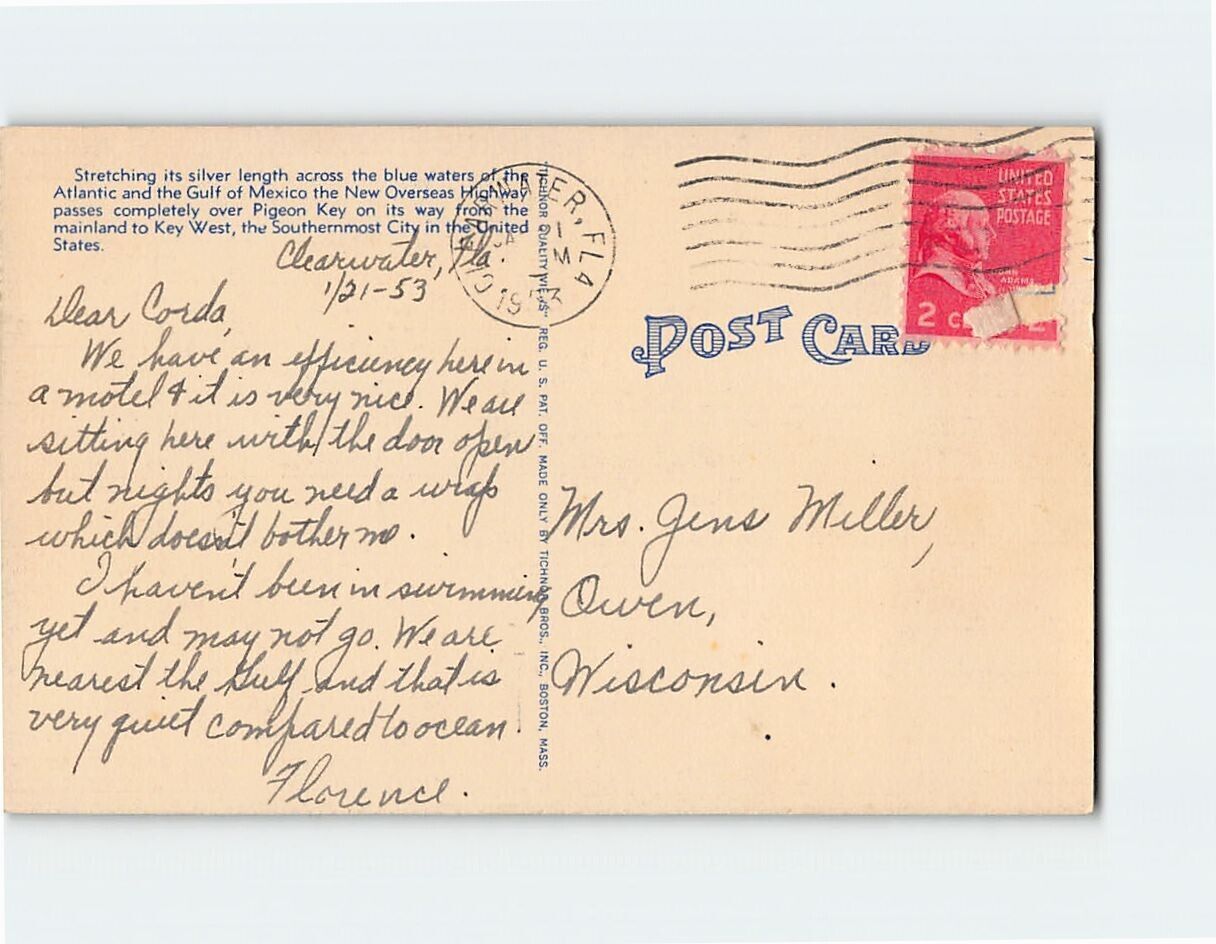 Stretching its silver length across the blue waters of the
Atlantic and the Gulf of Mexico the New Overseas Highway
passes completely over Pigeon Key on its way from the
mainland to Key West, the Southernmost City in the United
States.
Clearwater, Fla.
1/21-53
Dear Corda,
We have an efficiency here in
a motel & it is very nice. We are
sitting here with the door open
but nights you need a wrap
which doesn't bother me.
I haven't been in swimming
yet and may not go. We are
nearest the Gulf and that is
very quiet compared to ocean.
Florence.
TICHNOR QUALITY VIEWS" REG. U. S. PAT. OFF. MADE ONLY BY TICHNOR BROS., INC., BOSTON, MASS.
CLEARWATER, FLA
1953
UNITED
STATES
POSTAGE
JOHN
ADAMS
2
POST CARD
Mrs. Jens Miller,
Owen,
Wisconsin.